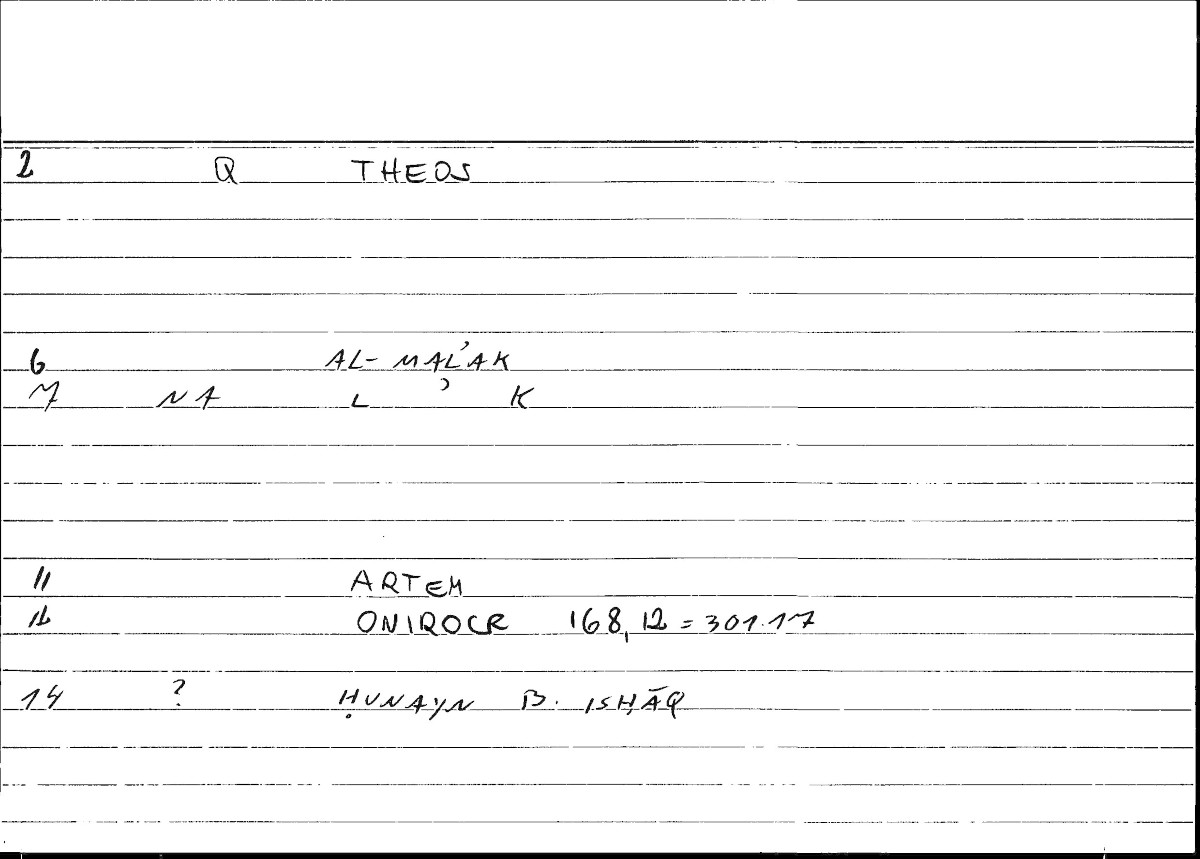 2 Q THEOS
6 AL-MAL'AK
7 NA L ' K
11 ARTEM
12 ONIROCR 168,12 = 301.17
14 ? ḤUNAYN B. ISḤĀQ